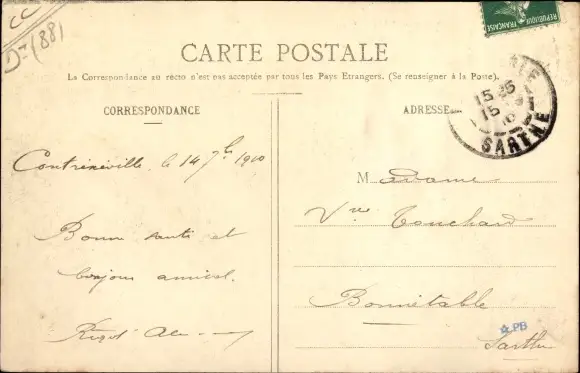 CC
Dt (88)
RÉPUBLIQUE FRANÇAISE
CARTE POSTALE
La Correspondance au recto n'est pas acceptée par tous les Pays Etrangers. (Se renseigner à la Poste).
CORRESPONDANCE
ADRESSE
15
15
10
SARTHE
Contrexéville, le 14 7bre 1910
Bonne santé et
bonjour amical.
Madame
Vve Touchard
Bonnétable
Sarthe
PB